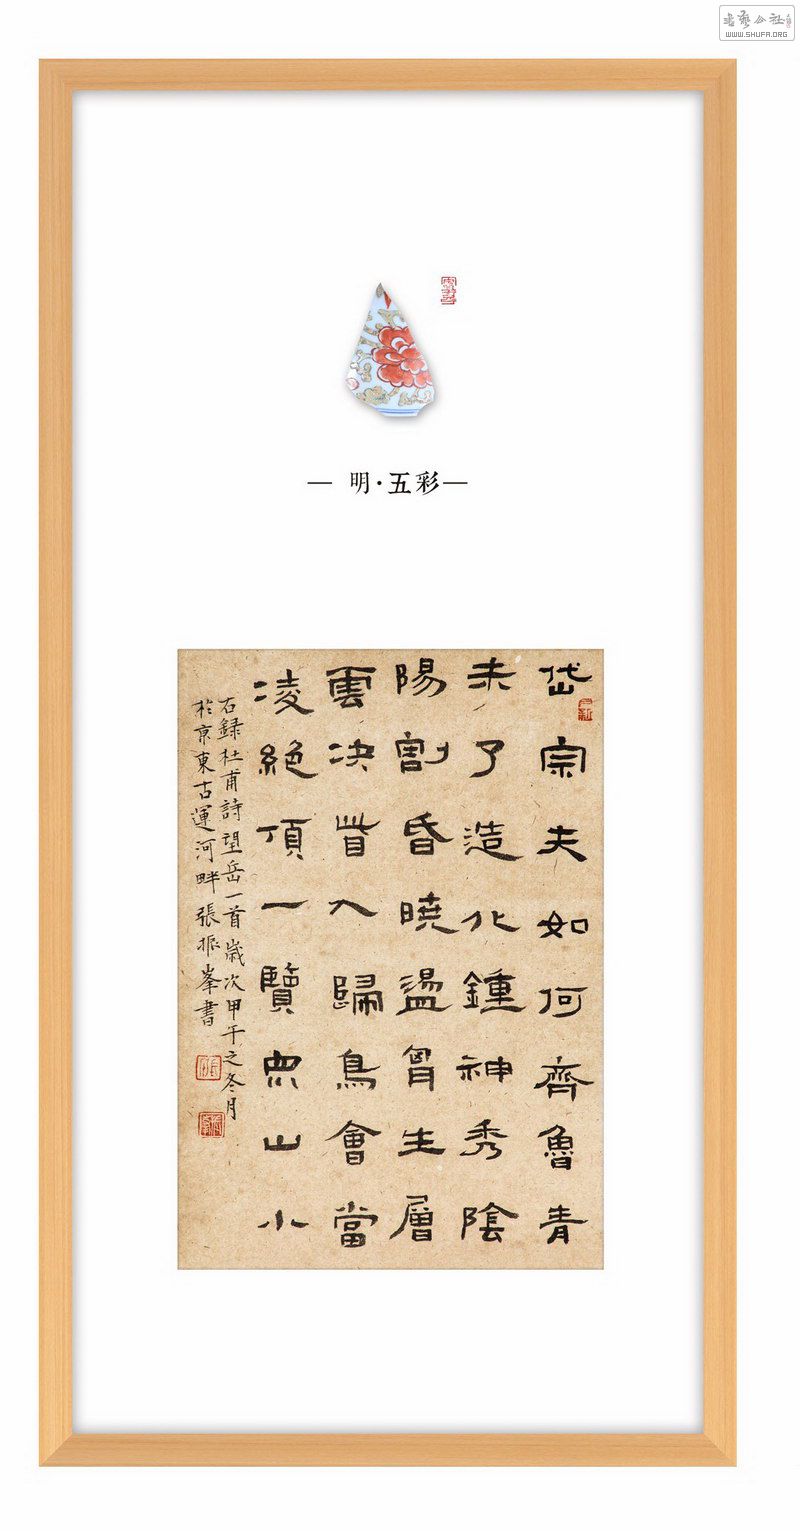 書藝公社
WWW.SHUFA.ORG
— 明·五彩—
岱宗夫如何齊魯青
未了造化鍾神秀陰
陽割昏曉盪胷生層
雲決眥入歸鳥會當
凌絕頂一覽眾山小
右録杜甫詩望岳一首歲次甲午之冬月
於京東古運河畔張振峯書